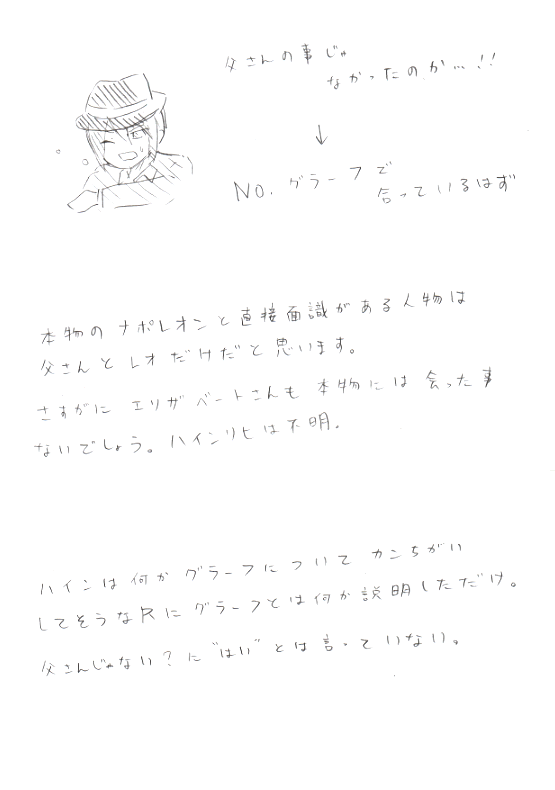 父さんの事じゃ
なかったのか…!!
↓
NO. グラーフで
合っているはず
本物のナポレオンと直接面識がある人物は
父さんとレオだけだと思います。
さすがにエリザベートさんも本物には会った事
ないでしょう。ハインリヒは不明。
ハインは何かグラーフについてカンちがい
してそうなRにグラーフとは何か説明しただけ。
父さんじゃない？に"はい"とは言っていない。